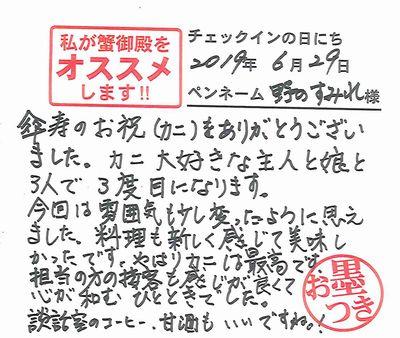 私が蟹御殿を
オススメ
します!!
チェックインの日にち
2019年 6月29日
ペンネーム 野のすみれ様
傘寿のお祝(カニ)をありがとうござい
ました。カニ大好きな主人と娘と
3人で 3度目になります。
今回は雰囲気も少し変ったように思え
ました。料理も新しく感じて美味し
かったです。やはりカニは最高です。
担当の方の接客も感じが良くて
心が和むひとときでした。
談話室のコーヒー、甘酒もいいですね。!
お墨つき